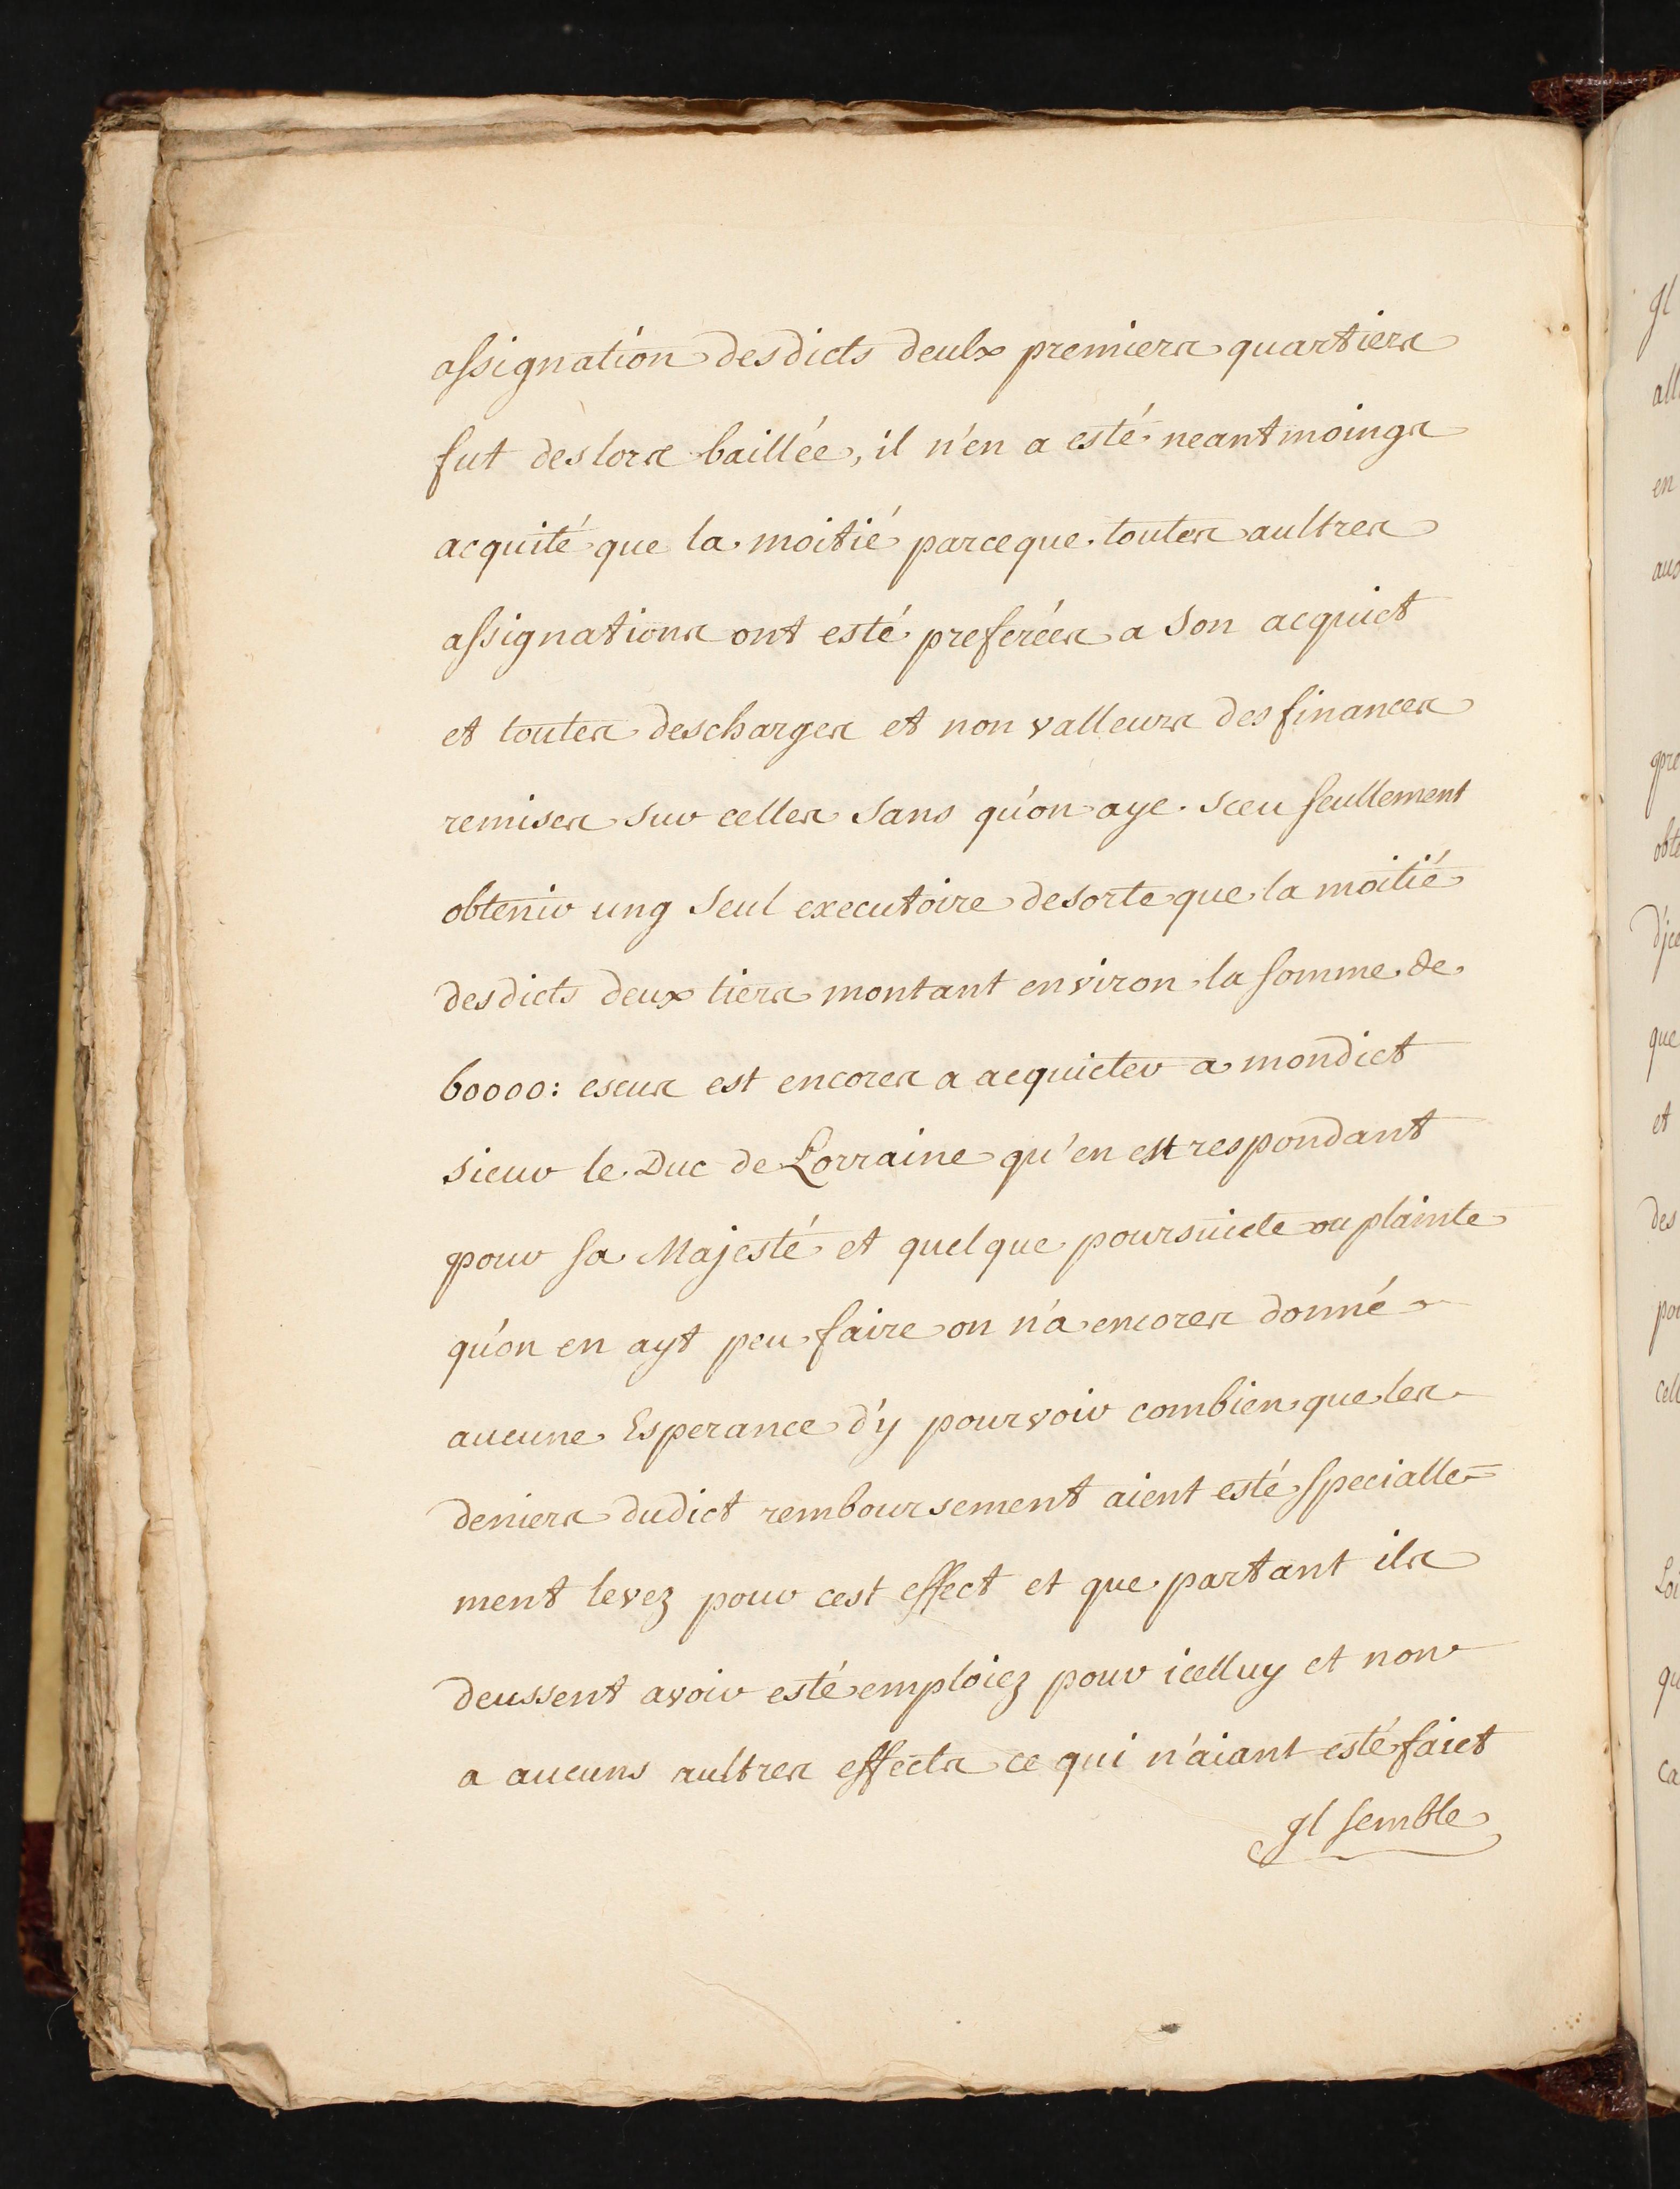 assignation desdicts deulx premiers quartiers
fut deslors baillée, il n'en a esté neantmoings
acquité que la moitié parceque toutes aultres
assignations ont esté preferées a son acquict
et toutes descharges et non valleurs des finances
remises sur celles sans qu'on aye sceu seullement
obtenir ung seul executoire desorte que la moitié
desdicts deux tiers montant environ la somme de
60000: escus est encores a acquicter a mondict
sieur le Duc de Lorraine qu'en est respondant
pour sa Majesté et quelque poursuicte ou plainte
qu'on en ayt peu faire on n'a encores donné
aucune Esperance d'y pourvoir combien que les
deniers dudict remboursement aient esté specialle=
ment levez pour cest effect et que partant ils
deussent avoir esté emploiez pour icelluy et non
a aucuns aultres effects ce qui n'aiant esté faict
Il semble
Il
all
en
pre
obte
d'ice
que
et
des
por
cell
Loi
qu
ca